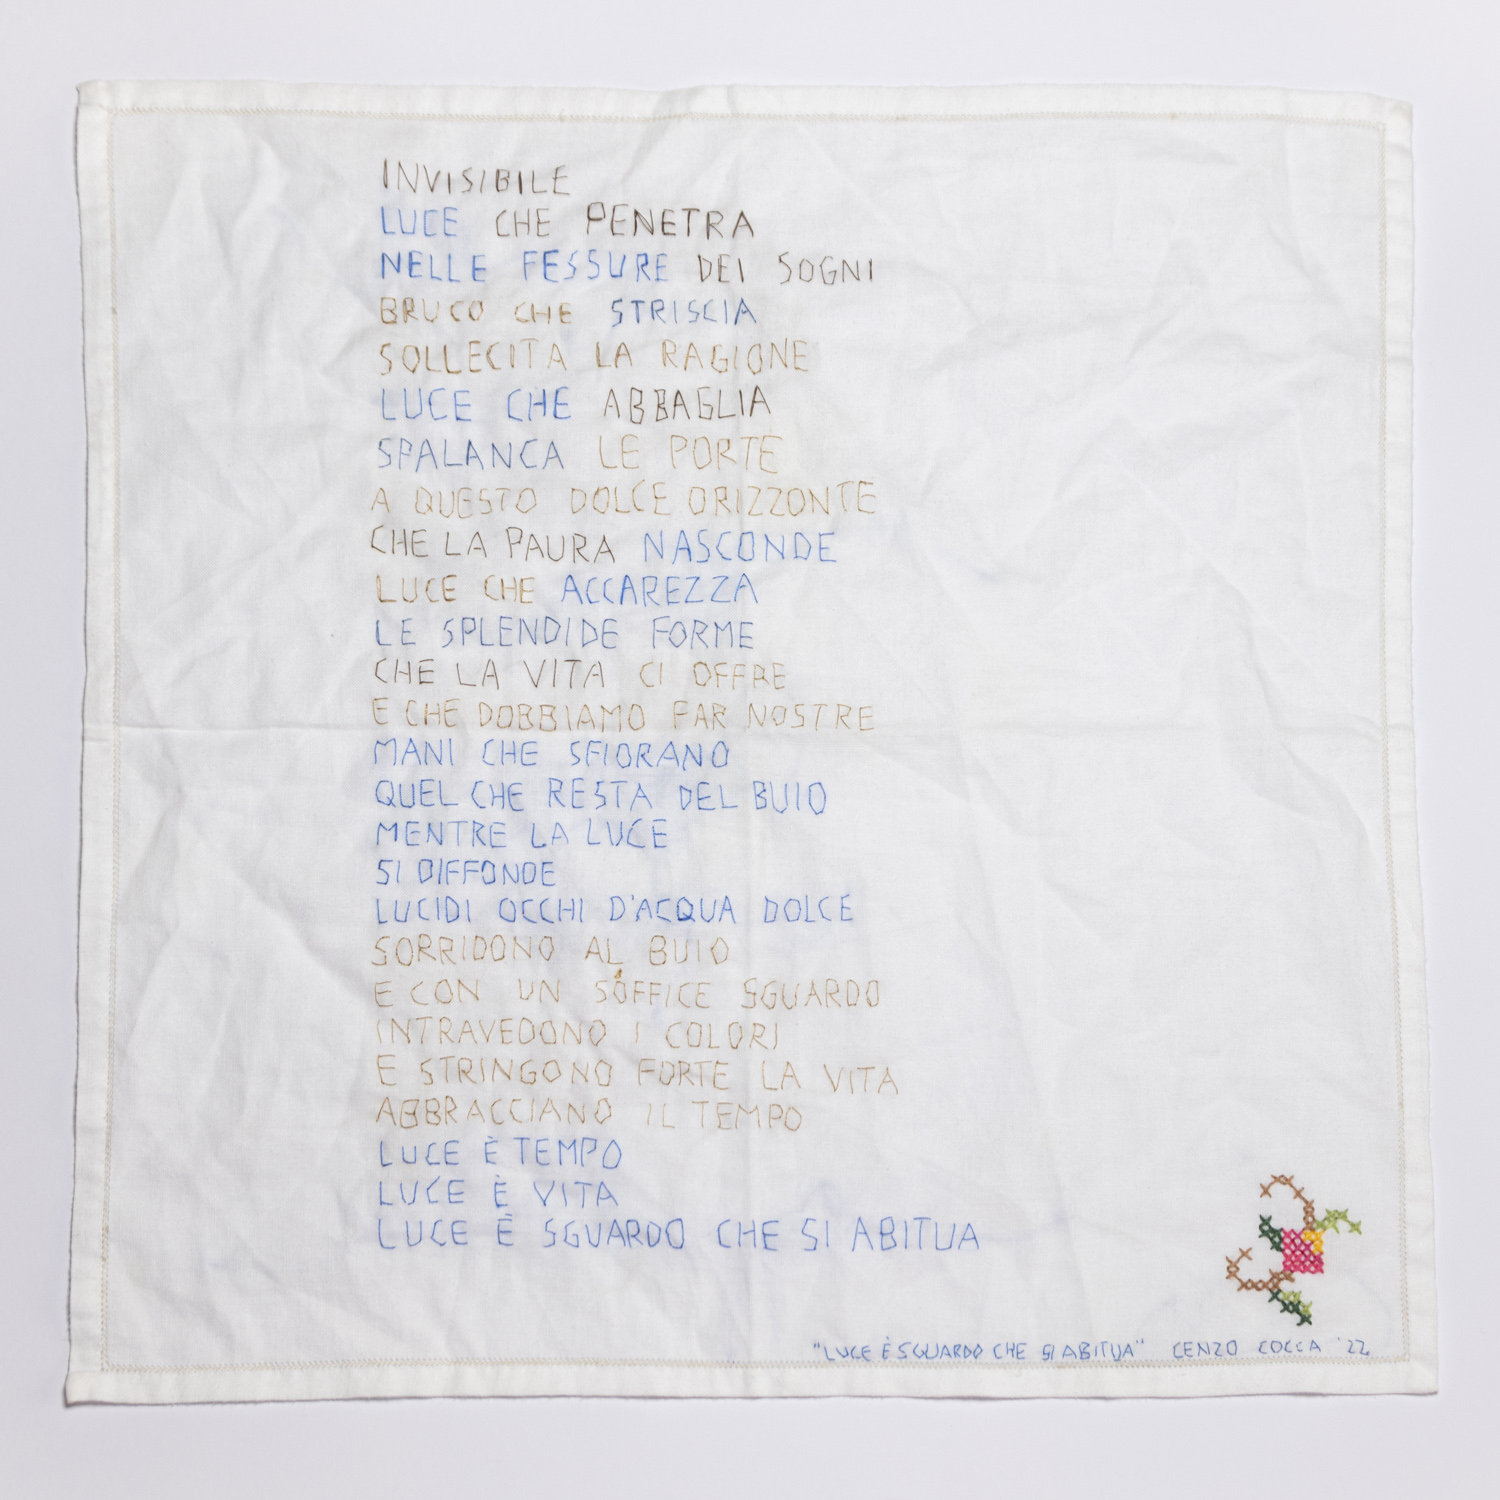 INVISIBILE
LUCE CHE PENETRA
NELLE FESSURE DEI SOGNI
BRUCO CHE STRISCIA
SOLLECITA LA RAGIONE
LUCE CHE ABBAGLIA
SPALANCA LE PORTE
A QUESTO DOLCE ORIZZONTE
CHE LA PAURA NASCONDE
LUCE CHE ACCAREZZA
LE SPLENDIDE FORME
CHE LA VITA CI OFFRE
E CHE DOBBIAMO FAR NOSTRE
MANI CHE SFIORANO
QUEL CHE RESTA DEL BUIO
MENTRE LA LUCE
SI DIFFONDE
LUCIDI OCCHI D'ACQUA DOLCE
SORRIDONO AL BUIO
E CON UN SOFFICE SGUARDO
INTRAVEDONO I COLORI
E STRINGONO FORTE LA VITA
ABBRACCIANO IL TEMPO
LUCE È TEMPO
LUCE È VITA
LUCE È SGUARDO CHE SI ABITUA
"LUCE È SGUARDO CHE SI ABITUA" CENZO COCCA '22